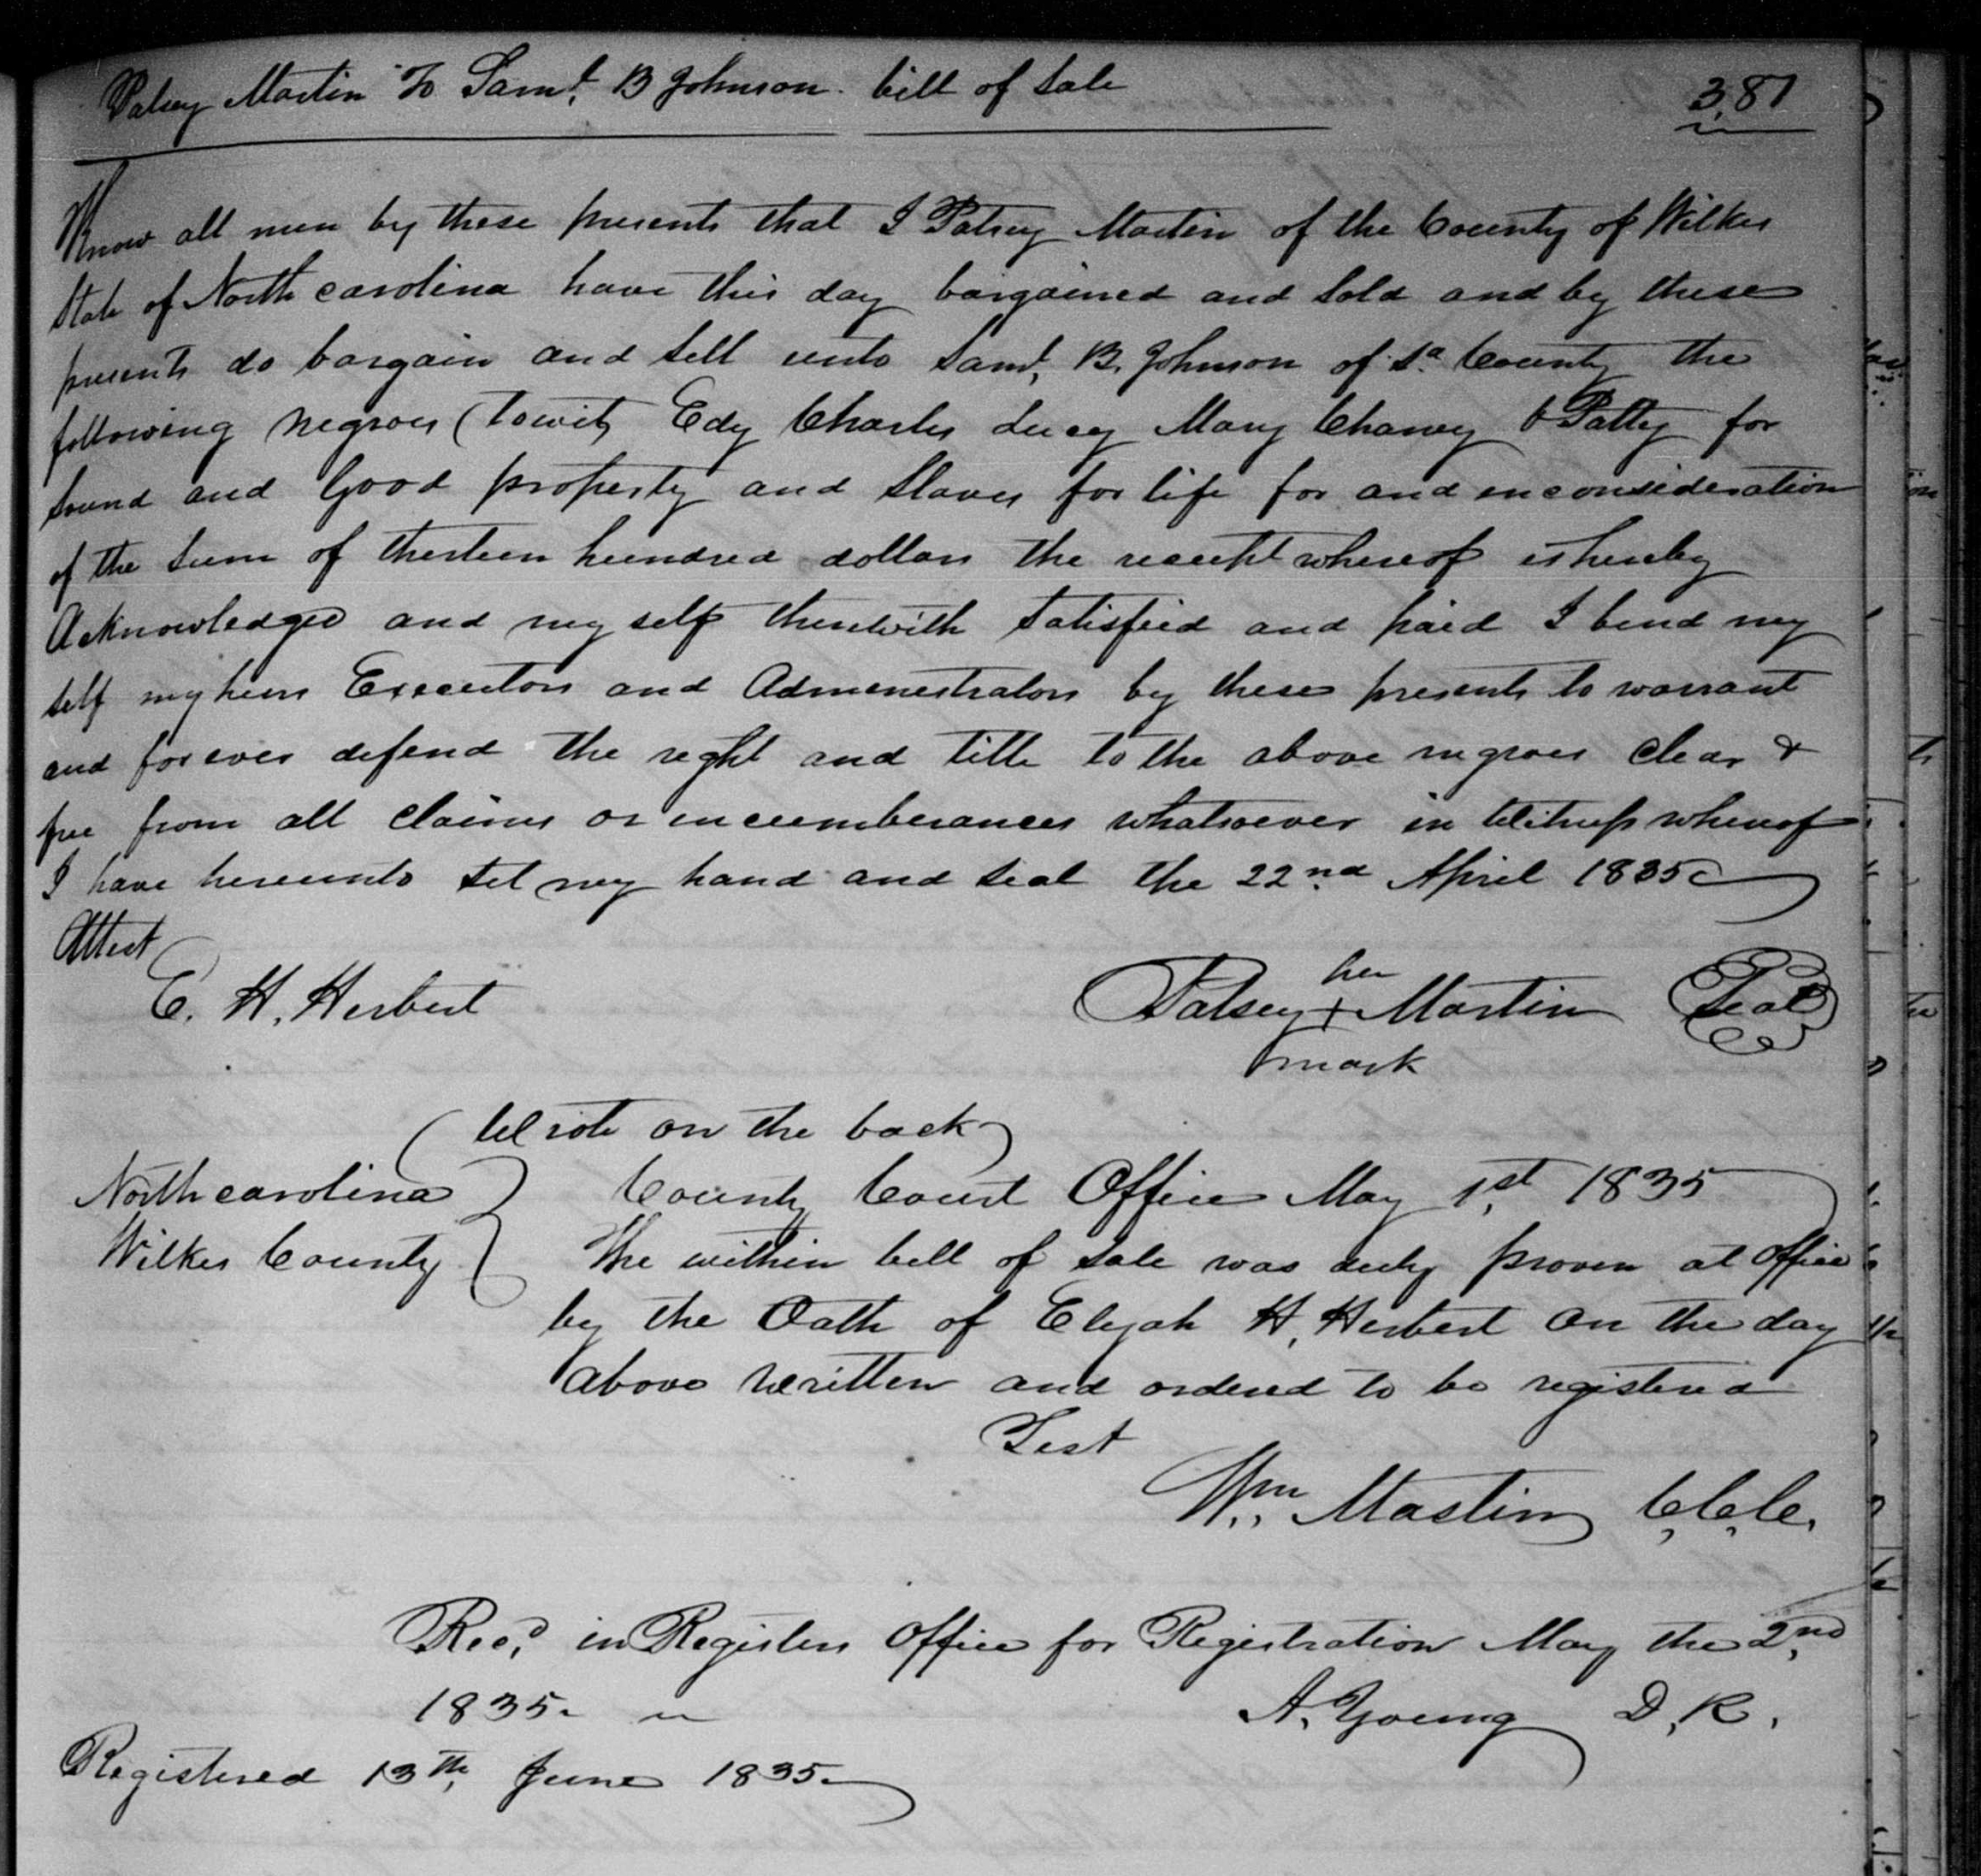 Patsey Martin To Saml. B Johnson. bill of Sale 387
Know all men by these presents that I Patsey Martin of the County of Wilkes
State of North carolina have this day bargained and Sold and by these
presents do bargain and Sell unto Saml. B. Johnson of sd. County the
following negroes (towit Edy Charles Lucy Mary Chaney & Patty for
Sound and Good property and Slaves for life for and in consideration
of the Sum of thirteen hundred dollars the receipt whereof is hereby
Acknowledged and my self therewith Satisfied and paid I bind my
self my heirs Executors and Administrators by these presents to warrant
and forever defend the right and title to the above negroes clear &
free from all claims or incumberances whatsoever in Witness whereof
I have hereunto Set my hand and Seal the 22nd. April 1835
Attest
E. H. Herbert
her
Patsey + Martin Seal
mark
(Wrote on the back)
North carolina } County Court Office May 1st. 1835
Wilkes County } The within bill of Sale was duly proven at Office
by the Oath of Elijah H. Herbert On the day
above Written and ordered to be registered
Test
Wm. Mastin C.C.C.
Recd. in Registers Office for Registration May the 2nd.
1835. A. Young D.R.
Registered 13th. June 1835.